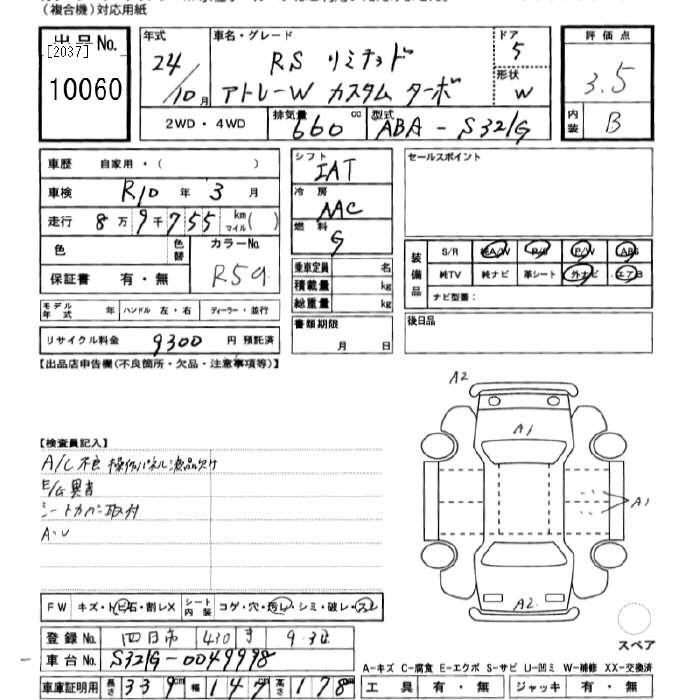 (複合機)対応用紙
出品No.
[2037]
10060
年式
24/10月
車名・グレード
RS リミテッド
アトレーW カスタム ターボ
ドア
5
形状
W
評価点
3.5
内装
B
2WD・4WD
排気量
660 cc
型式
ABA-S321G
車歴 自家用・( )
車検 R10年 3月
走行 8万9千755 km マイル( )
色 色替 カラーNo.
R59
保証書 有・無
シフト
IAT
冷房
AAC
燃料
G
乗車定員 名
積載量 kg
総重量 kg
書類期限
月 日
セールスポイント
装備品
S/R 純A/W P/S P/W ABS
純TV 純ナビ 革シート 外ナビ エアB
ナビ型番:
後日品
モデル年式 年 ハンドル 左・右 ディーラー・並行
リサイクル料金 9300円 預託済
【出品店申告欄(不良箇所・欠品・注意事項等)】
【検査員記入】
A/C不良 操作パネル
E/G異音
シートカバー取付
A・U
FW キズ・トビ石・割レX シート内装 コゲ・穴・汚レ・シミ・破レ・スレ
登録No. 四日市 430
車台No. S321G-0049998
車庫証明用 長さ 339cm 幅 147cm 高さ 178cm
A2
A1
A1
A2
スペア
A-キズ C-腐食 E-エクボ S-サビ U-凹ミ W-補修 XX-交換済
工具 有・無 ジャッキ 有・無